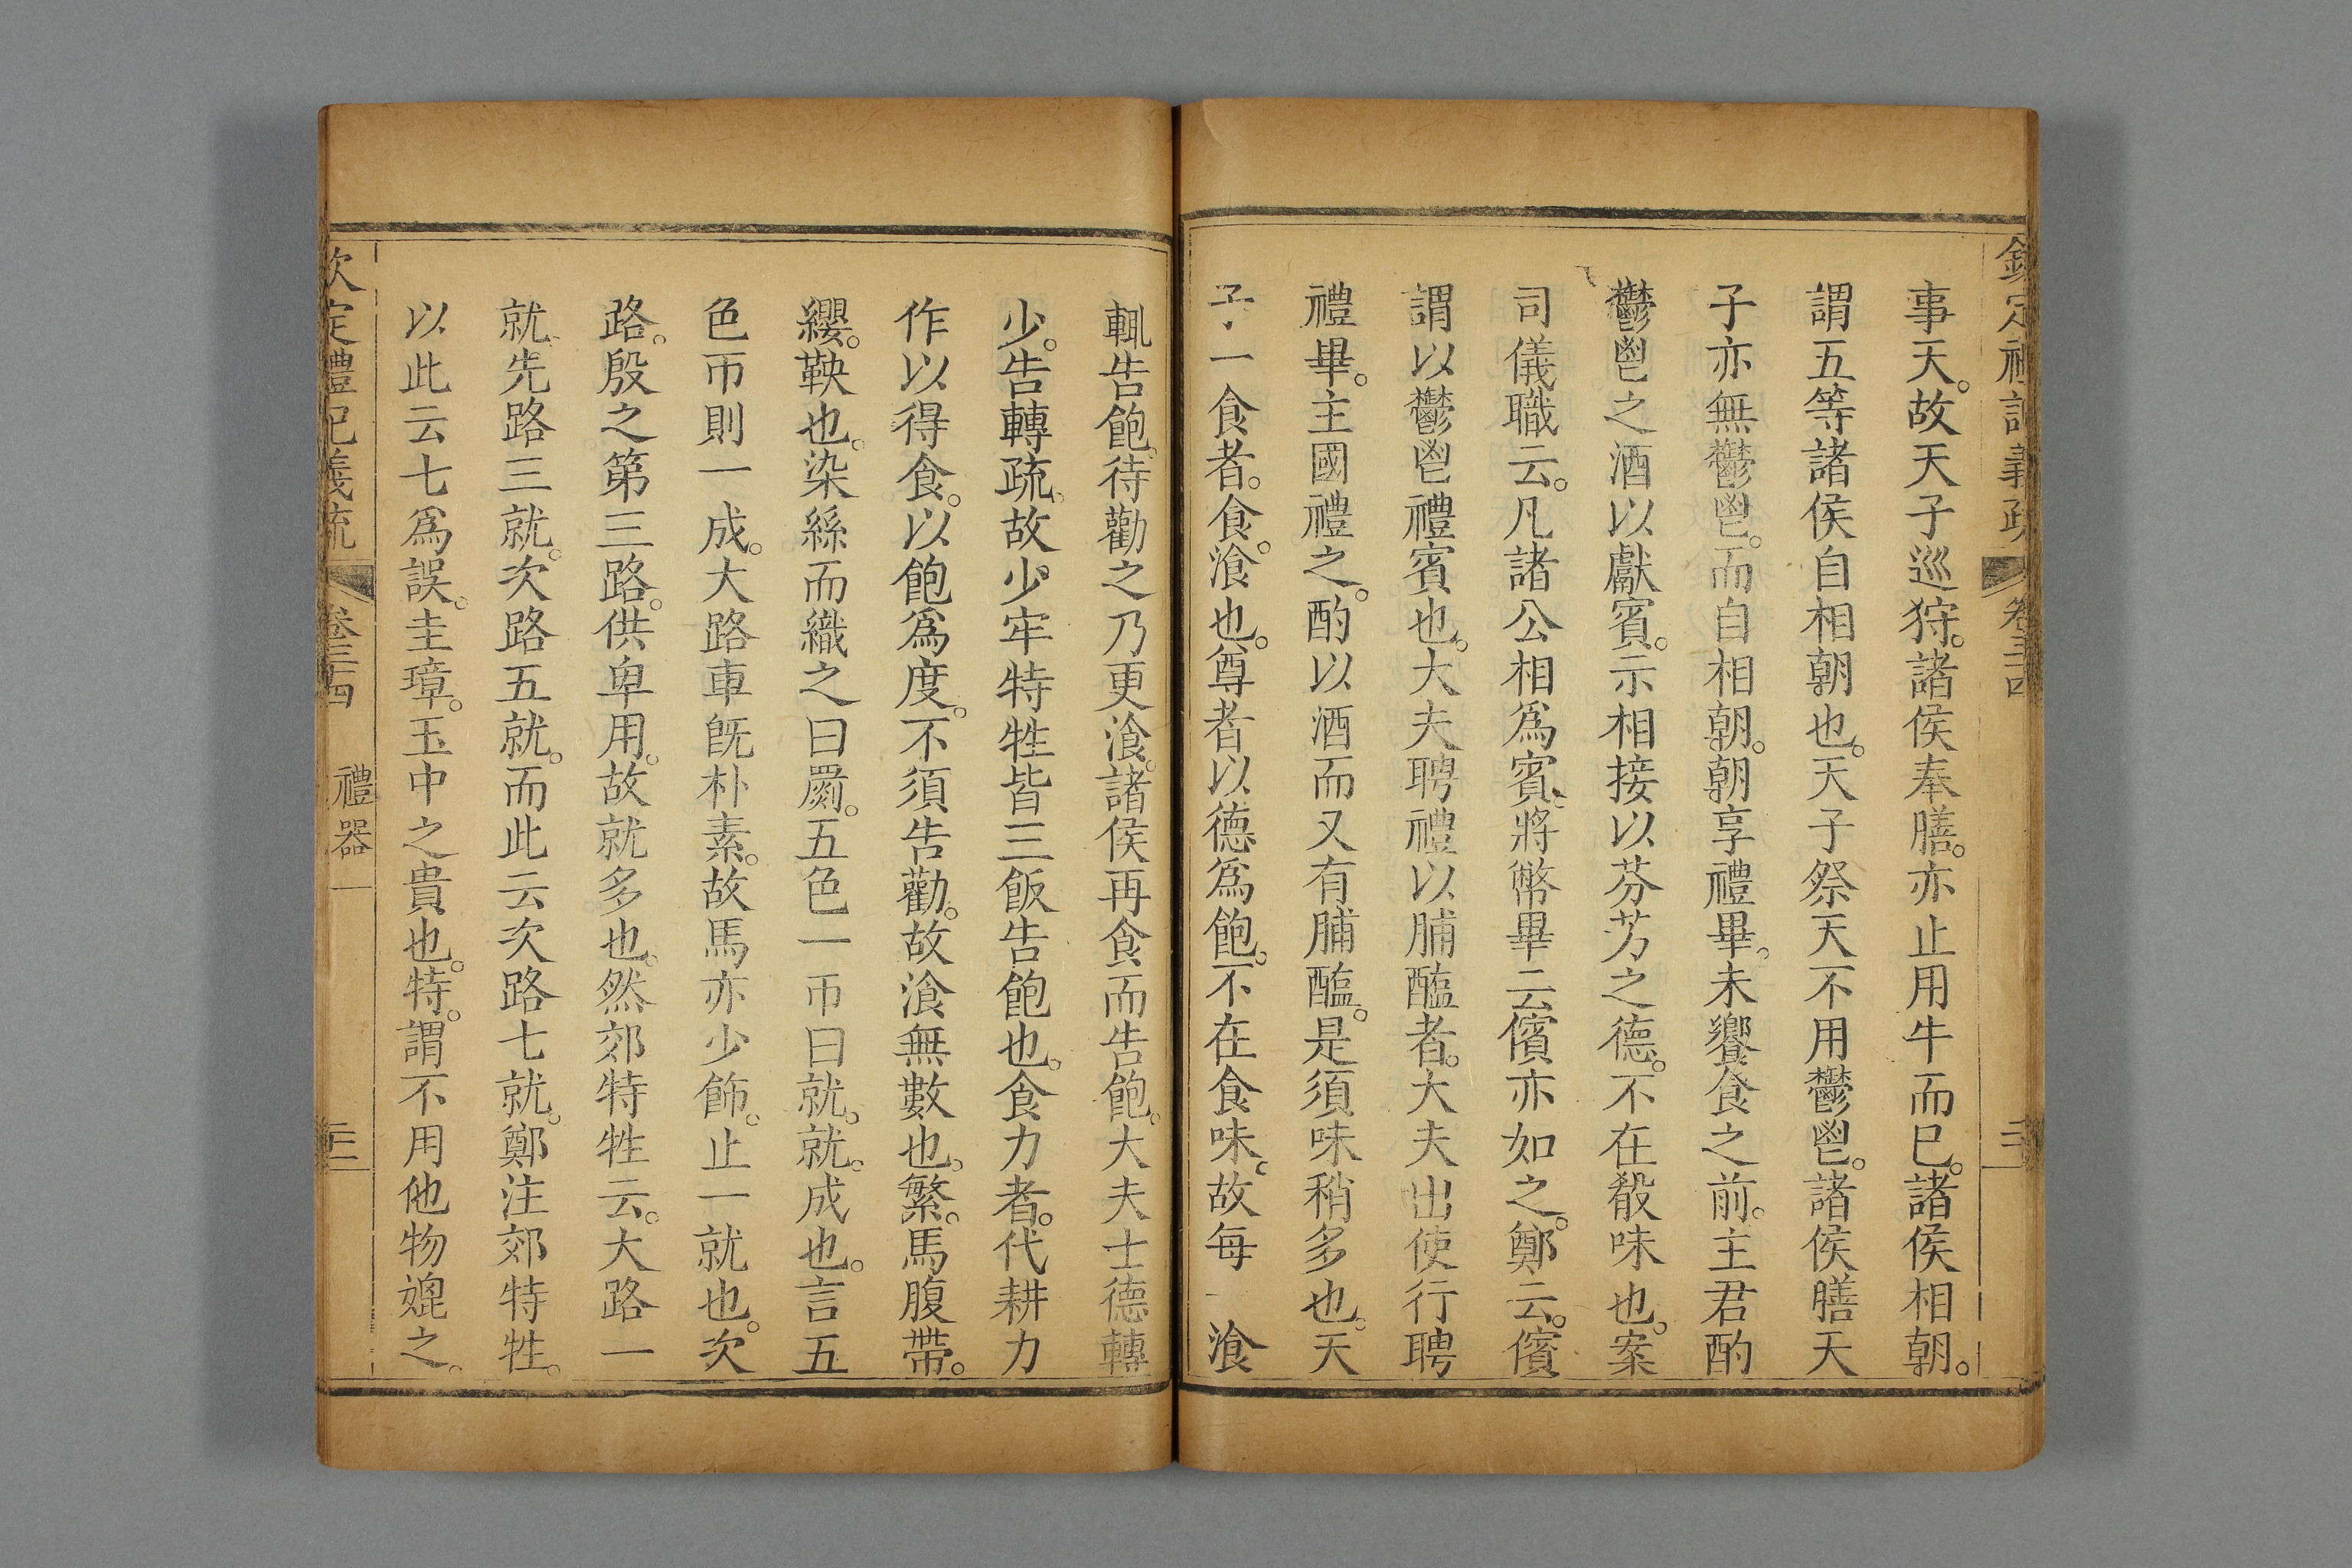 欽定禮記義疏 卷三十四
事天。故天子巡狩。諸侯奉膳。亦止用牛而已。諸侯相朝。
謂五等諸侯自相朝也。天子祭天不用鬱鬯。諸侯膳天
子亦無鬱鬯。而自相朝。朝享禮畢。未饗食之前。主君酌
鬱鬯之酒以獻賓。示相接以芬芳之德。不在殽味也。案
司儀職云。凡諸公相爲賓。將幣畢云儐亦如之。鄭云。儐
謂以鬱鬯禮賓也。大夫聘禮以脯醢者。大夫出使行聘
禮畢。主國禮之。酌以酒而又有脯醢。是須味稍多也。天
子一食者。食。飡也。尊者以德爲飽。不在食味。故每一飡
輒告飽。待勸之乃更飡。諸侯再食而告飽。大夫士德轉
少。告轉疏。故少牢特牲皆三飯告飽也。食力者。代耕力
作以得食。以飽爲度。不須告勸。故飡無數也。繁。馬腹帶。
纓。鞅也。染絲而織之曰罽。五色一帀曰就。就。成也。言五
色帀則一成。大路車旣朴素。故馬亦少飾。止一就也。次
路。殷之第三路。供卑用。故就多也。然郊特牲云。大路一
就。先路三就。次路五就。而此云次路七就。鄭注郊特牲。
以此云七爲誤。圭璋。玉中之貴也。特。謂不用他物媲之。
欽定禮記義疏 卷三十四 禮器一